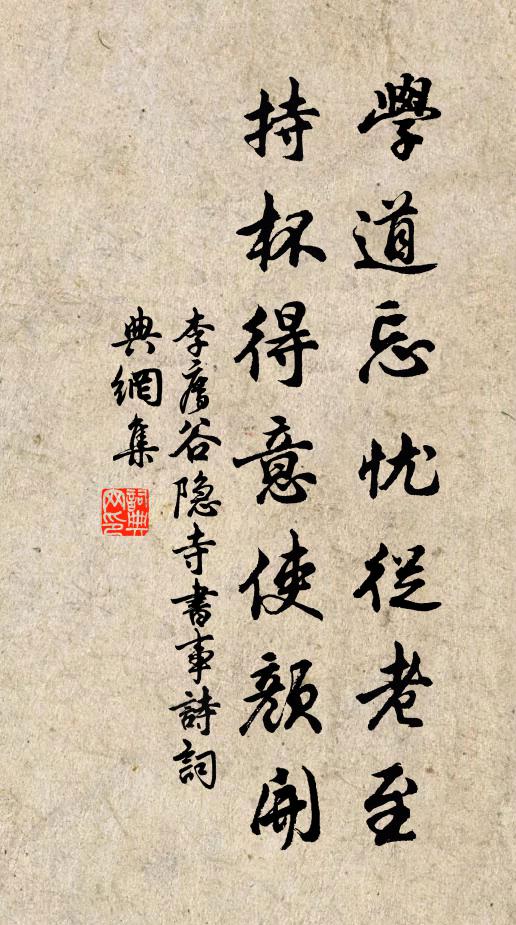 學道忘忧從老至
持杯得意使顏開
李廌谷隐寺書事詩詞
典網集
詞典网印